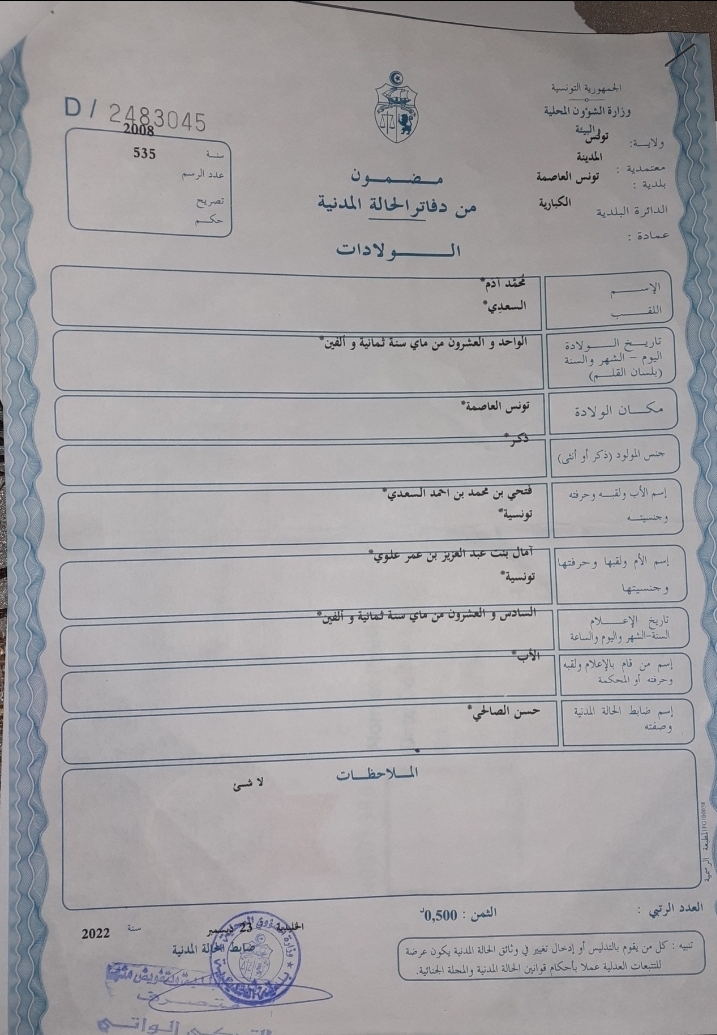 الجمهورية التونسية
وزارة الشؤون المحلية
والبيئة
ولاية: تونس
معتمدية : المدينة
بلدية : تونس العاصمة
الدائرة البلدية الكبارية
عمادة :
D / 2483045
سنة 2008
عدد الرسم 535
تصريح
حكم
مضمون
من دفاتر الحالة المدنية
الولادات
الإسم محمد آدم*
اللقب السعدي*
تاريخ الولادة
اليوم - الشهر والسنة
(بلسان القلم)
الواحد و العشرون من ماي سنة ثمانية و ألفين*
مكان الولادة تونس العاصمة*
جنس المولود (ذكر أو أنثى) ذكر*
إسم الأب ولقبه وحرفته فتحي بن محمد بن احمد السعدي*
وجنسيته تونسية*
إسم الأم ولقبها وحرفتها آمال بنت عبد العزيز بن عمر علوي*
وجنسيتها تونسية*
تاريخ الإعلام السادس و العشرون من ماي سنة ثمانية و ألفين*
السنة-الشهر واليوم والساعة
إسم من قام بالإعلام ولقبه الأب*
وحرفته أو المحكمة
إسم ضابط الحالة المدنية حسن الصالحي*
وصفته
الملاحظات
لا شئ
المطبعة الرسمية
العدد الرتبي :
الثمن : 0,500د
23 ديسمبر سنة 2022
ضابط الحالة المدنية
تنبيه : كل من يقوم بالتدليس أو إدخال تغيير في وثائق الحالة المدنية يكون عرضة
للتتبعات العدلية عملا بأحكام قوانين الحالة المدنية والمجلة الجنائية.
متصرف